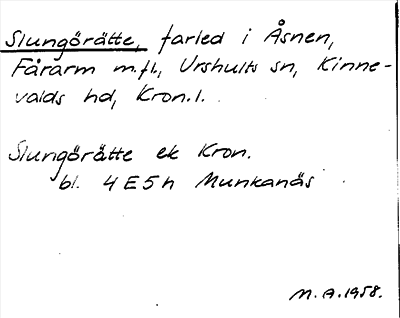 Slungörätte, farled i Åsnen,
Fårarm m.fl., Urshults sn, Kinne-
valds hd, Kron.l.
Slungörätte ek Kron.
bl. 4E5h Munkanäs
M.A.1958.